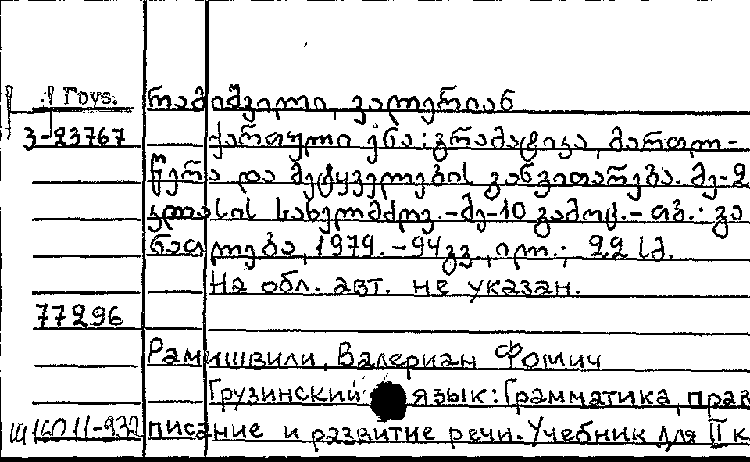 Груз. რამიშვილი, ვალერიან
3-23767 ქართული ენა: გრამატიკა, მართლ-
წერა და მეტყველების განვითარება. მე-2
კლასის სახელმძღვ. - მე-10 გამოც. - თბ.: გა
ნათლება, 1979. - 94 გვ., ილ.; 22 სმ.
На обл. авт. не указан.
77296
Рамишвили, Валериан Фомич
Грузинский язык: Грамматика, прав
Ш16011-932 писание и развитие речи. Учебник для II к